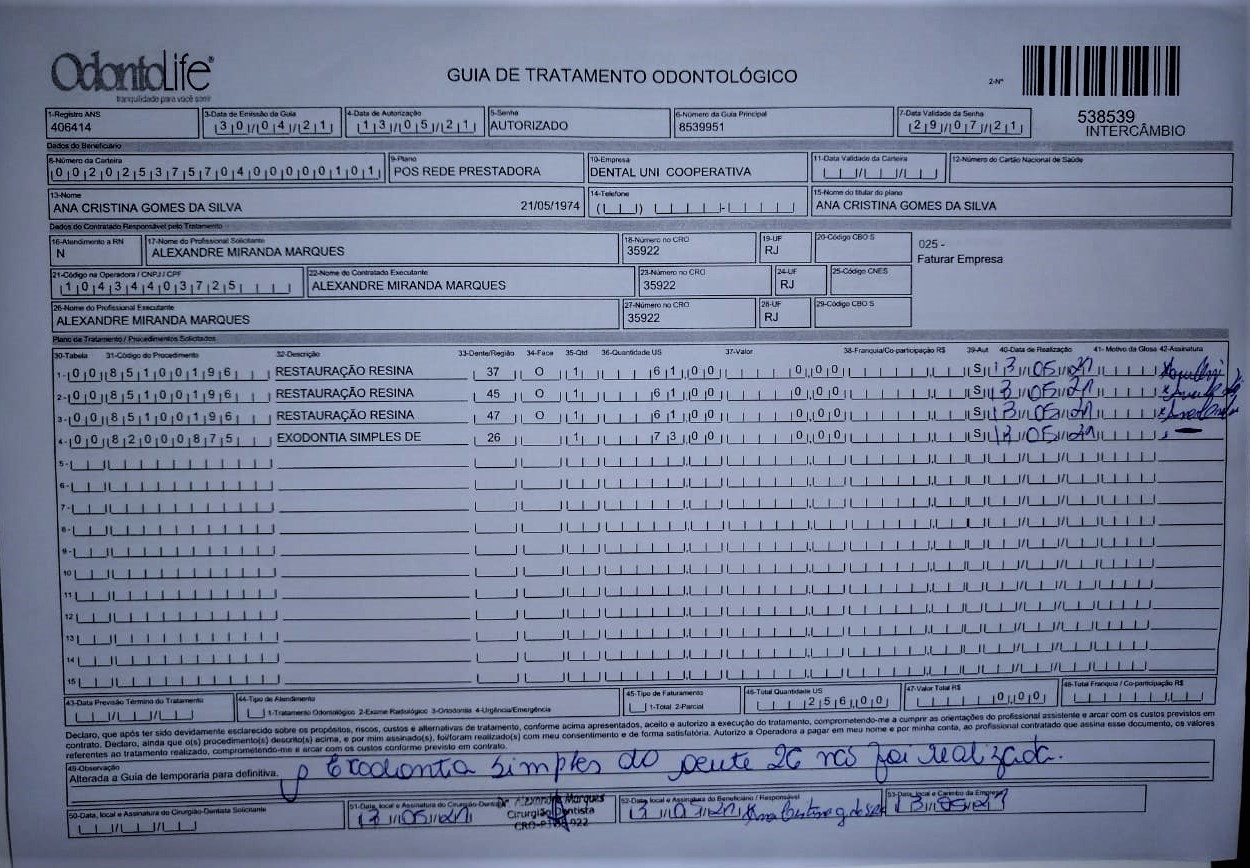 OdontoLife
tranquilidade para você sorrir
GUIA DE TRATAMENTO ODONTOLÓGICO
2-Nº
538539
INTERCÂMBIO
1-Registro ANS 3-Data de Emissão da Guia 4-Data de Autorização 5-Senha 6-Número da Guia Principal 7-Data Validade da Senha
406414 30/04/21 13/05/21 AUTORIZADO 8539951 29/07/21
Dados do Beneficiário
8-Número da Carteira 9-Plano 10-Empresa 11-Data Validade da Carteira 12-Número do Cartão Nacional de Saúde
00202537570400000101 POS REDE PRESTADORA DENTAL UNI COOPERATIVA
13-Nome 14-Telefone 15-Nome do titular do plano
ANA CRISTINA GOMES DA SILVA 21/05/1974 ANA CRISTINA GOMES DA SILVA
Dados do Contratado Responsável pelo Tratamento
16-Atendimento a RN 17-Nome do Profissional Solicitante 18-Número no CRO 19-UF 20-Código CBO S 025 -
N ALEXANDRE MIRANDA MARQUES 35922 RJ Faturar Empresa
21-Código na Operadora / CNPJ / CPF 22-Nome do Contratado Executante 23-Número no CRO 24-UF 25-Código CNES
10434403725 ALEXANDRE MIRANDA MARQUES 35922 RJ
26-Nome do Profissional Executante 27-Número no CRO 28-UF 29-Código CBO S
ALEXANDRE MIRANDA MARQUES 35922 RJ
Plano de Tratamento / Procedimentos Solicitados
30-Tabela 31-Código do Procedimento 32-Descrição 33-Dente/Região 34-Face 35-Qtd 36-Quantidade US 37-Valor 38-Franquia/Co-participação R$ 39-Aut 40-Data de Realização 41- Motivo da Glosa 42-Assinatura
1- 00 85100196 RESTAURAÇÃO RESINA 37 O 1 61,00 0,00 S 13/05/21
2- 00 85100196 RESTAURAÇÃO RESINA 45 O 1 61,00 0,00 S 13/05/21
3- 00 85100196 RESTAURAÇÃO RESINA 47 O 1 61,00 0,00 S 13/05/21
4- 00 82000875 EXODONTIA SIMPLES DE 26 1 73,00 0,00 S 13/05/21
5-
6-
7-
8-
9-
10
11
12
13
14
15
43-Data Previsão Término do Tratamento 44-Tipo de Atendimento 45-Tipo de Faturamento 46-Total Quantidade US 47-Valor Total R$ 48-Total Franquia / Co-participação R$
1-Tratamento Odontológico 2-Exame Radiológico 3-Ortodontia 4-Urgência/Emergência 1-Total 2-Parcial 256,00 0,00
Declaro, que após ter sido devidamente esclarecido sobre os propósitos, riscos, custos e alternativas de tratamento, conforme acima apresentados, aceito e autorizo a execução do tratamento, comprometendo-me a cumprir as orientações do profissional assistente e arcar com os custos previstos em
contrato. Declaro, ainda que o(s) procedimento(s) descrito(s) acima, e por mim assinado(s), foi/foram realizado(s) com meu consentimento e de forma satisfatória. Autorizo a Operadora a pagar em meu nome e por minha conta, ao profissional contratado que assina esse documento, os valores
referentes ao tratamento realizado, comprometendo-me a arcar com os custos conforme previsto em contrato.
49-Observação
Alterada a Guia de temporaria para definitiva. Exodonta simples do dente 26 não foi realizada.
50-Data, local e Assinatura do Cirurgião-Dentista Solicitante 51-Data, local e Assinatura do Cirurgião-Dentista 52-Data, local e Assinatura do Beneficiário / Responsável 53-Data, local e Carimbo da Empresa
13/05/21 13/05/21 13/05/21
Dr. Alexandre Marques
Cirurgião Dentista